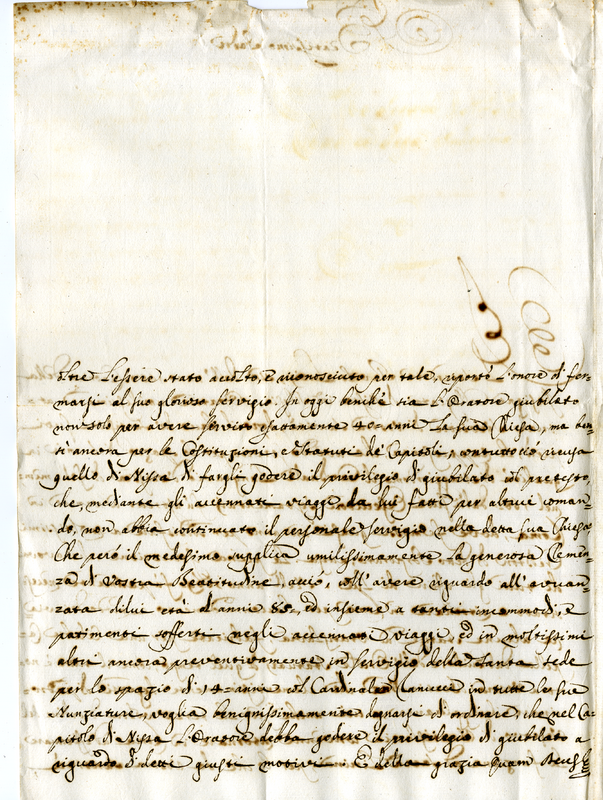 oltre l'essere stato accolto, e riconosciuto per tale, riportò l'onore di fer=
marsi al suo glorioso servigio. In oggi benchè sia l'Oratore giubilato
non solo per avere servito esattamente 40 anni la sua Chiesa, ma ben=
sì ancora per le Costituzioni, e Statuti de' Capitoli, contuttociò ricusa
quello di Nissa di fargli godere il privilegio di giubilato col pretesto,
che, mediante gli accennati viaggi da lui fatti per altrui coman=
do, non abbia continuato il personale servigio nella detta sua Chiesa
Che però il medesimo supplica umilissimamente la generosa Clemen=
za di Vostra Beatitudine, acciò, coll'avere riguardo all'avvan=
zata di lui età d'anni 85, ed insieme a tanti incommodi, e
patimenti sofferti negli accennati viaggi, ed in moltissimi
altri ancora preventivamente in servigio della Santa Sede
per lo spazio di 14 anni col Cardinale in tutte le sue
Nunziature, voglia benignissimamente degnarsi di ordinare, che nel Ca=
pitolo di Nissa l'Oratore debba godere il privilegio di giubilato a
riguardo di detti giusti motivi. E della grazia Quam Deus